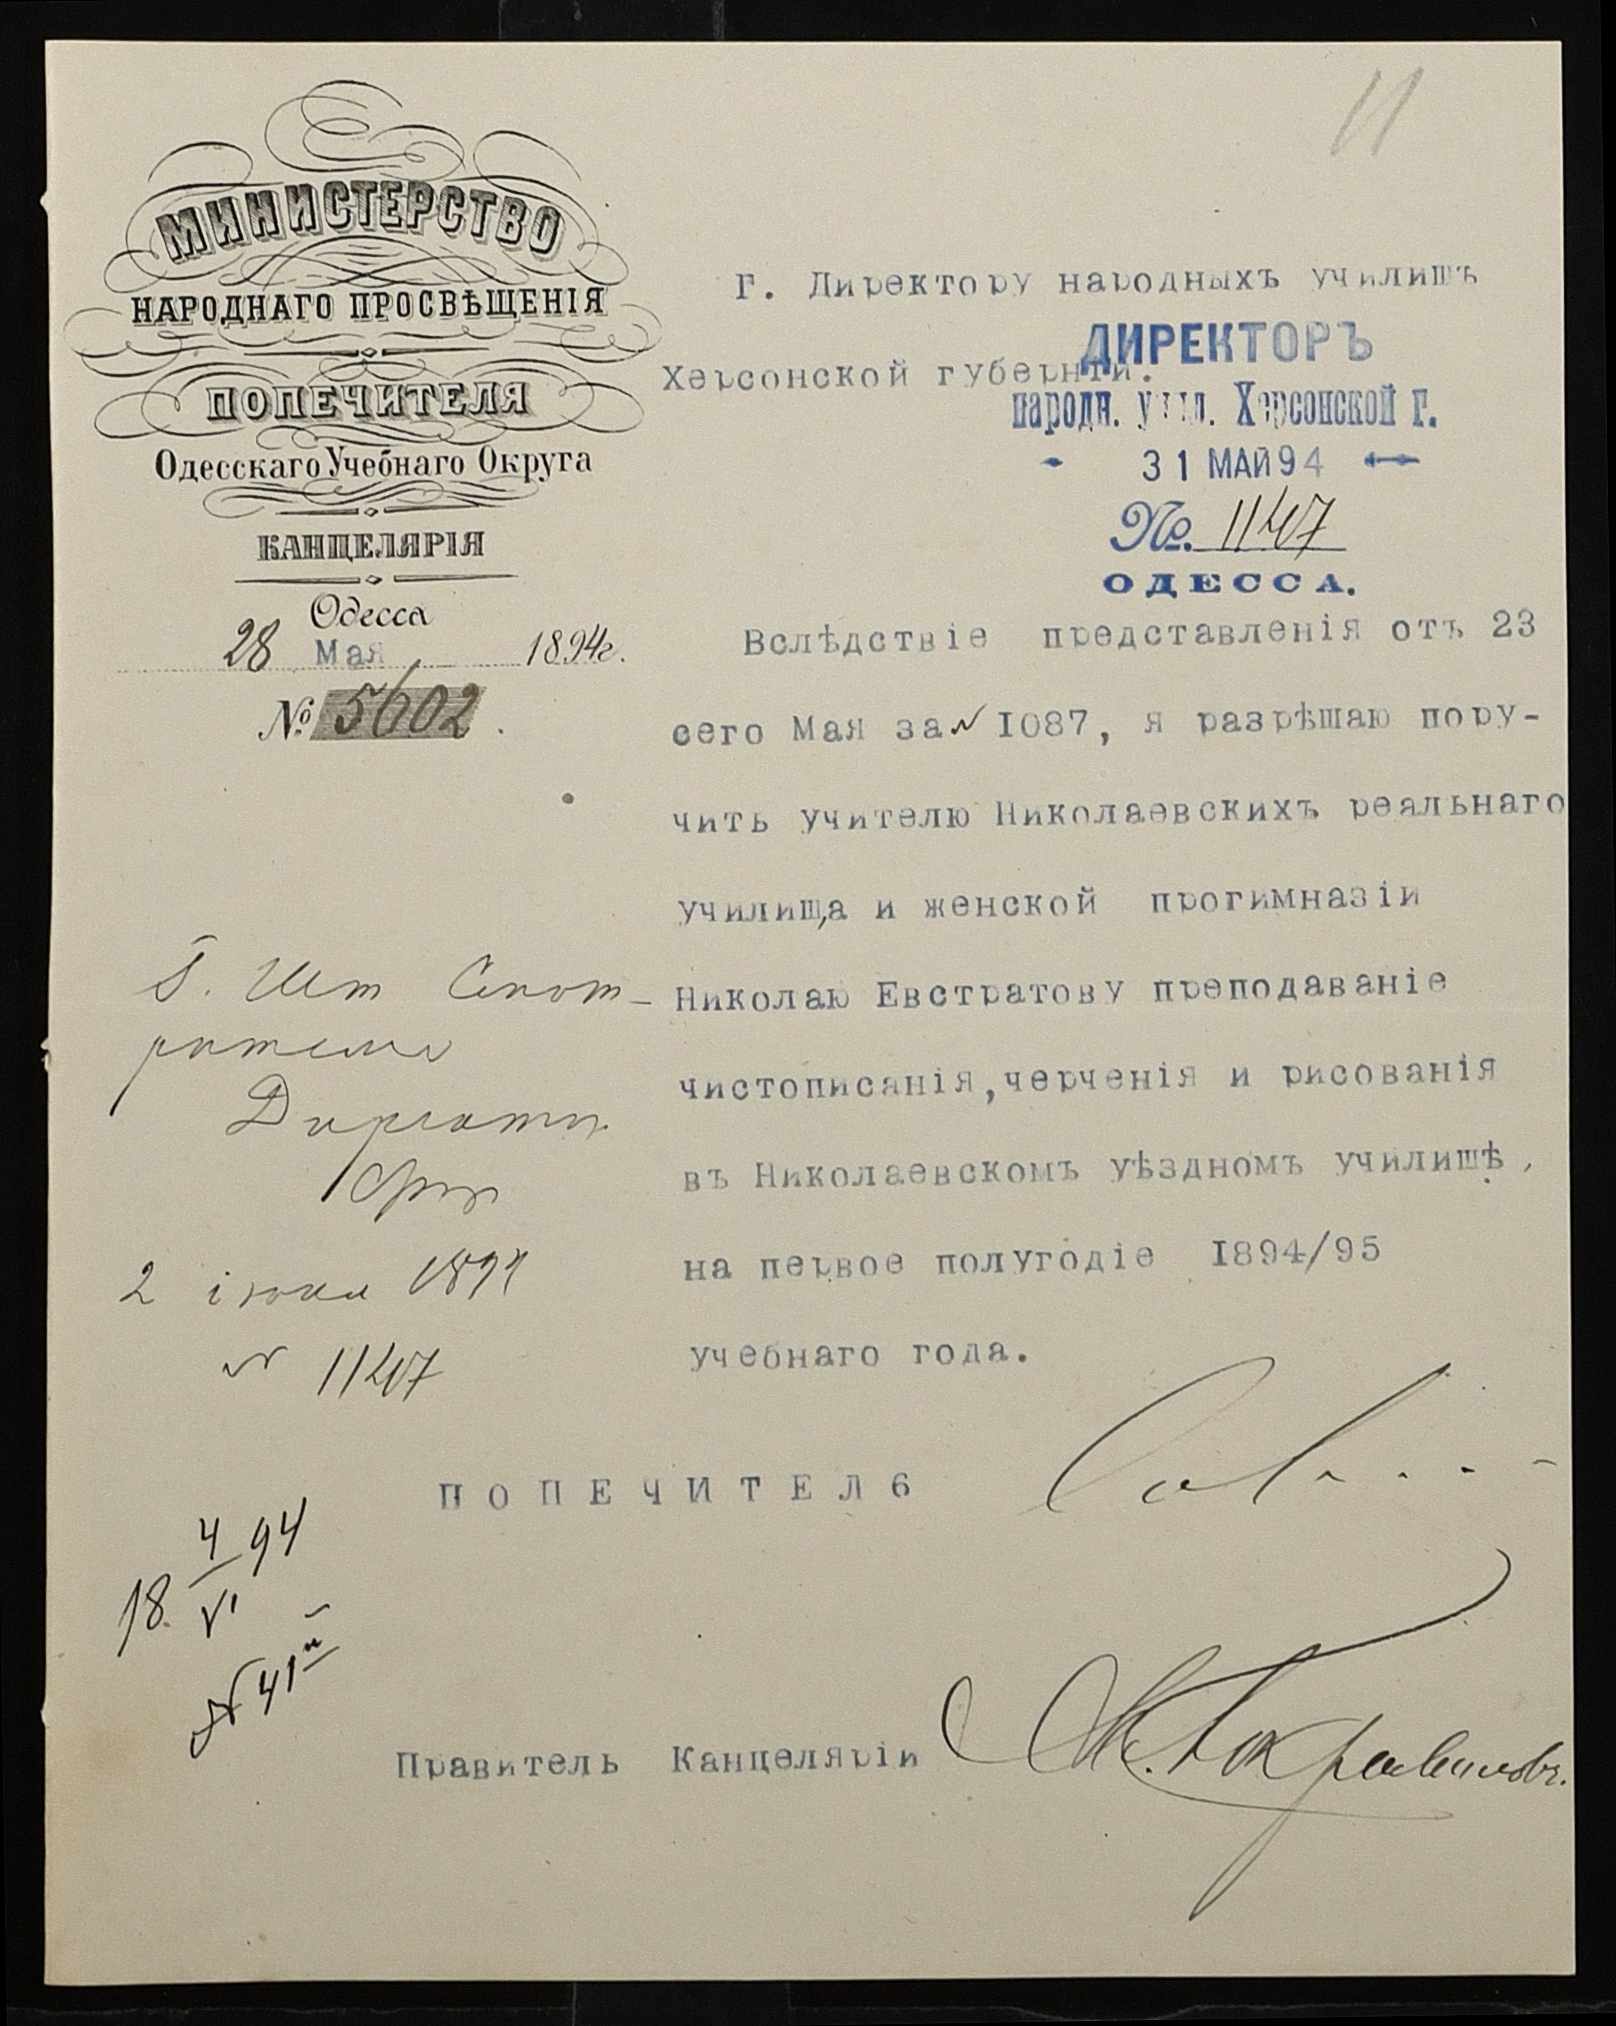 11
МИНИСТЕРСТВО
НАРОДНАГО ПРОСВѢЩЕНІЯ
ПОПЕЧИТЕЛЯ
Одесскаго Учебнаго Округа
КАНЦЕЛЯРІЯ
Одесса
28 Мая 1894г.
№ 5602.
Г. Директору народныхъ училищъ
Херсонской губерніи.
ДИРЕКТОРЪ
народн. учил. Херсонской г.
31 МАЙ 94
№. 1147
ОДЕССА.
Вслѣдствіе представленія отъ 23
сего Мая за № 1087, я разрѣшаю пору-
чить учителю Николаевскихъ реальнаго
училища и женской прогимназіи
Николаю Евстратову преподаваніе
чистописанія, черченія и рисованія
въ Николаевскомъ уѣздномъ училищѣ,
на первое полугодіе 1894/95
учебнаго года.
Г. Шт Смот-
рителю
Директоръ
2 іюня 1894
№ 1147
ПОПЕЧИТЕЛЬ
18 4/VI 94
№ 41й
Правитель Канцеляріи